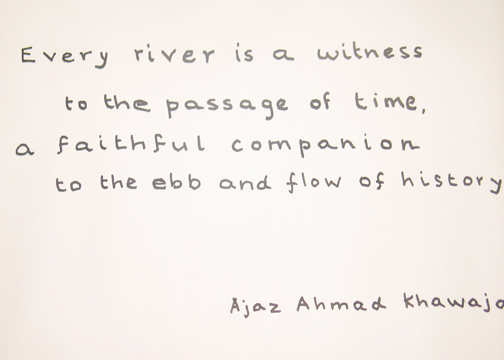 Every river is a witness
to the passage of time,
a faithful companion
to the ebb and flow of history
Ajaz Ahmad Khawaja